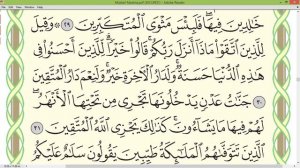 Mushaf Madinah.pdf (SECURED) - Adobe Reader
خَٰلِدِينَ فِيهَا ۖ فَلَبِئْسَ مَثْوَى ٱلْمُتَكَبِّرِينَ ٢٩ ۞ وَقِيلَ
لِلَّذِينَ ٱتَّقَوْا۟ مَاذَآ أَنزَلَ رَبُّكُمْ ۚ قَالُوا۟ خَيْرًا ۗ لِّلَّذِينَ أَحْسَنُوا۟ فِى
هَٰذِهِ ٱلدُّنْيَا حَسَنَةٌ ۚ وَلَدَارُ ٱلْءَاخِرَةِ خَيْرٌ ۚ وَلَنِعْمَ دَارُ ٱلْمُتَّقِينَ
٣٠ جَنَّٰتُ عَدْنٍ يَدْخُلُونَهَا تَجْرِى مِن تَحْتِهَا ٱلْأَنْهَٰرُ ۖ
لَهُمْ فِيهَا مَا يَشَآءُونَ ۚ كَذَٰلِكَ يَجْزِى ٱللَّهُ ٱلْمُتَّقِينَ ٣١
ٱلَّذِينَ تَتَوَفَّىٰهُمُ ٱلْمَلَٰٓئِكَةُ طَيِّبِينَ ۙ يَقُولُونَ سَلَٰمٌ